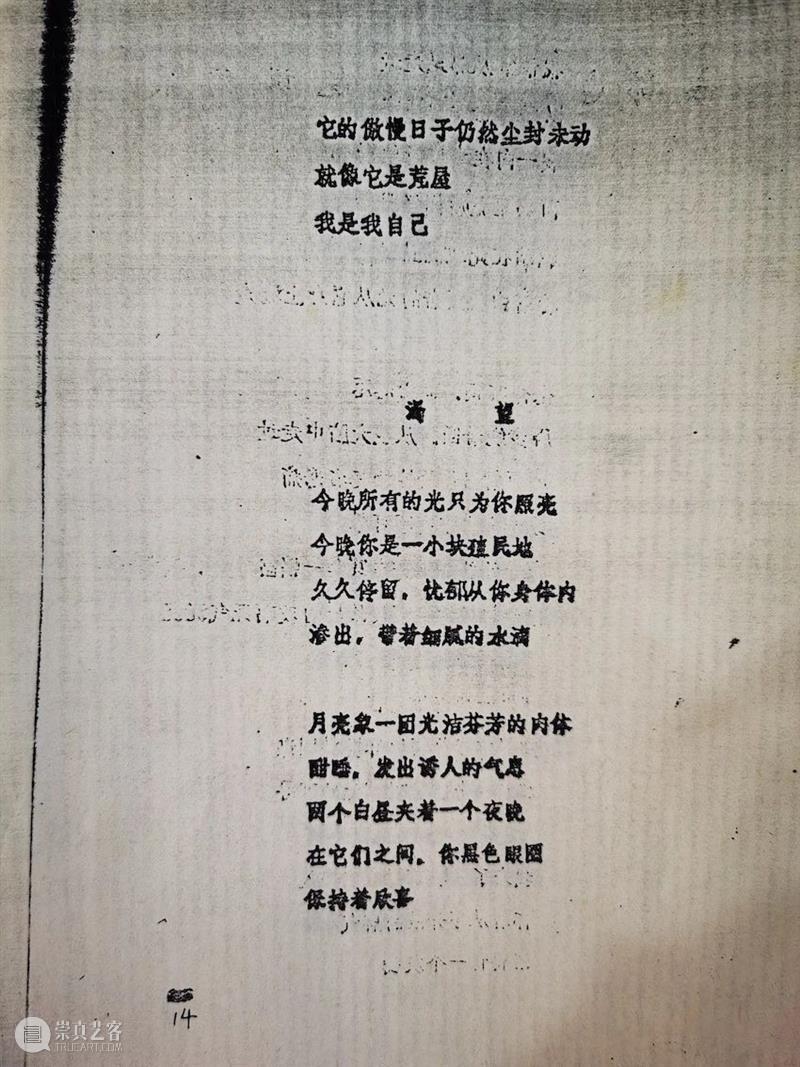 它的傲慢日子仍然尘封未动
就像它是荒屋
我是我自己
渴望
今晚所有的光只为你照亮
今晚你是一小块殖民地
久久停留，忧郁从你身体内
渗出，带着细腻的水滴
月亮象一团光洁芬芳的肉体
酣睡，发出诱人的气息
两个白昼夹着一个夜晚
在它们之间，你黑色眼圈
保持着欣喜
14
崇真艺客
TRUEART.COM